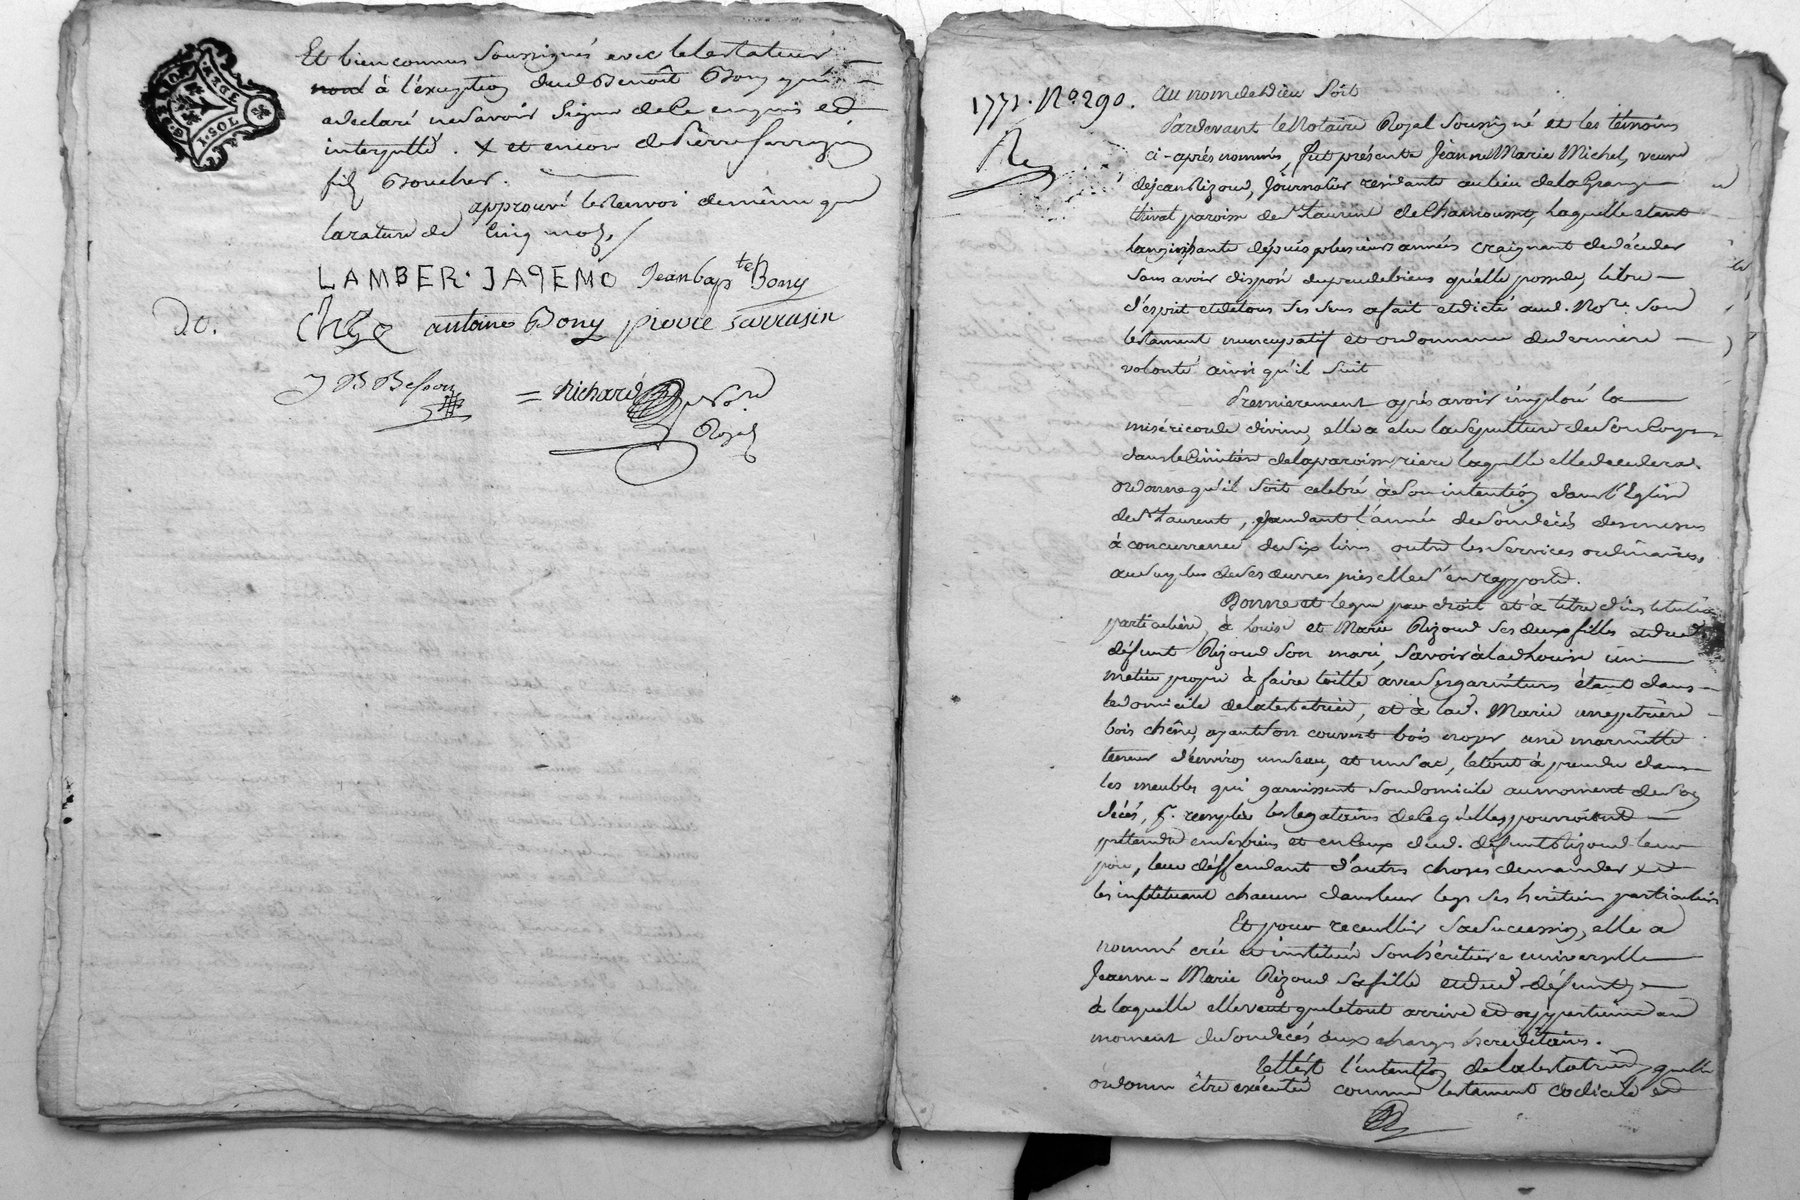 Et bien connus Soussignés avec le testateur
nond à l'exception dud Benoit Bony qui
a declaré ne Savoir Signer de ce enquis et
interpellé. X et encore de Pierre Sarrazin
fils Boucher.
approuvé le Renvoi de même que
la rature de Cinq mots /
LAMBER · JAPEMO Jean bapte Bony
Do.
antoine Bony pierre sarrasin
J B Besson = Richard Nore
Royal
1 · SOL
1771. No. 290.
Au nom de Dieu Soit
Pardevant le Notaire Royal Soussigné et les témoins
ci-après nommés, fut présente Jeanne Marie Michel, veuve
de jean Rizoud, Journalier residante au lieu de la Grange
thivat paroisse de St. Laurent de Chamousset, laquelle etant
languissante depuis plusieurs années craignant de décéder
Sans avoir disposé du peu de biens qu'elle possede, libre
d'esprit et de tous Ses Sens a fait et dicté aud. Nore. Son
testament nuncupatif et ordonnance de derniere
volonté ainsi qu'il Suit
Premierement après avoir imploré la
miséricorde divine, elle a elu la Sepulture de Son Corps
dans le Cimitière de la paroisse riere laquelle elle decedera.
ordonne qu'il Soit celebré à Son intention dans l'Eglise
de St Laurent, pendant l'année de Son décès des messes
à concurrence de Six livres outre les Services ordinaires,
au Surplus de Ses œuvres pies elle S'en rapporte.
Donne et legue par droit et à titre d'institution
particulière à Louise et Marie Rizoud Ses deux filles et dud
défunt Rizoud Son mari, Savoir à lad Louise un
métier propre à faire toille avec Ses garnitures étant dans
le domicile de la testatrice, et à lad. Marie une petrière
bois chêne, ayant Son couvert bois noyer une marmitte
teneur d'environ un Seau, et un Sac, le tout à prendre dans
les meubles qui garnissent Son domicile au moment de Son
décès, pr. remplir les legataires de ce qu'elles pourroient
prétendre en Ses biens et en Ceux dud. défunt Rizoud leur
père, leur déffendant d'autres choses demander et
les instituant chacune dans leur legs Ses heritiers particuliers
Et pour receullir Sa Succession, elle a
nommé crée et institué Son héritiere universelle
Jeanne-Marie Rizoud Sa fille et dud défunt,
à laquelle elle veut que le tout arrive et appartienne au
moment de Son décès aux charges héréditaires.
telle est l'intention de la testatrice, quelle
ordonne être exécutée comme testament Codicile et